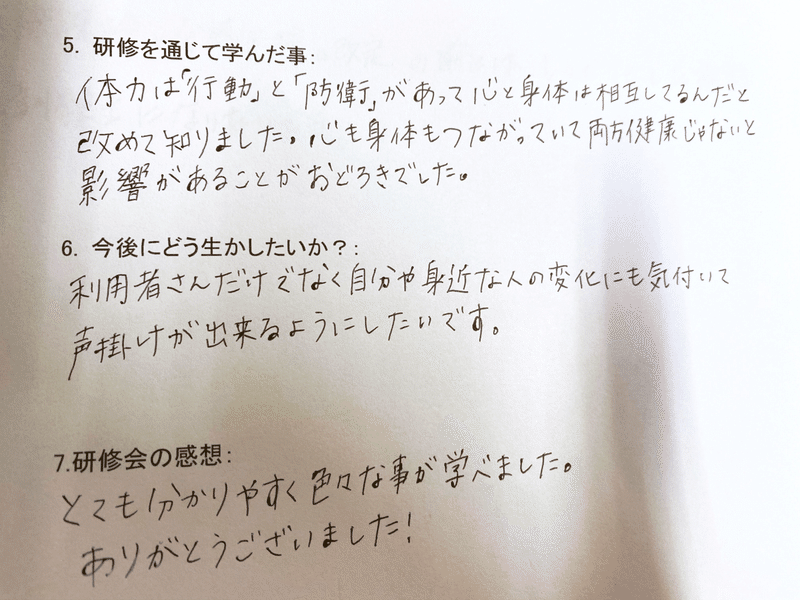 5. 研修を通じて学んだ事:
体力は「行動」と「防衛」があって心と身体は相互してるんだと
改めて知りました。心も身体もつながっていて両方健康じゃないと
影響があることがおどろきでした。
6. 今後にどう生かしたいか?:
利用者さんだけでなく自分や身近な人の変化にも気付いて
声掛けが出来るようにしたいです。
7.研修会の感想:
とても分かりやすく色々な事が学べました。
ありがとうございました!